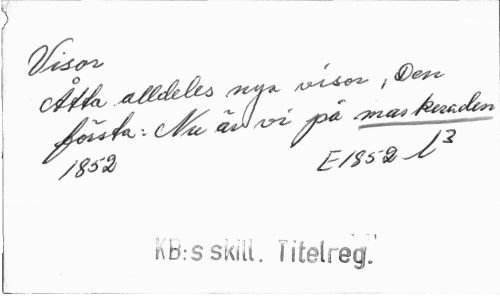 Visor
Åtta alldeles nya visor, Den
första: Nu är vi på maskeraden
1852 E1852 l3
KB:s skill. Titelreg.